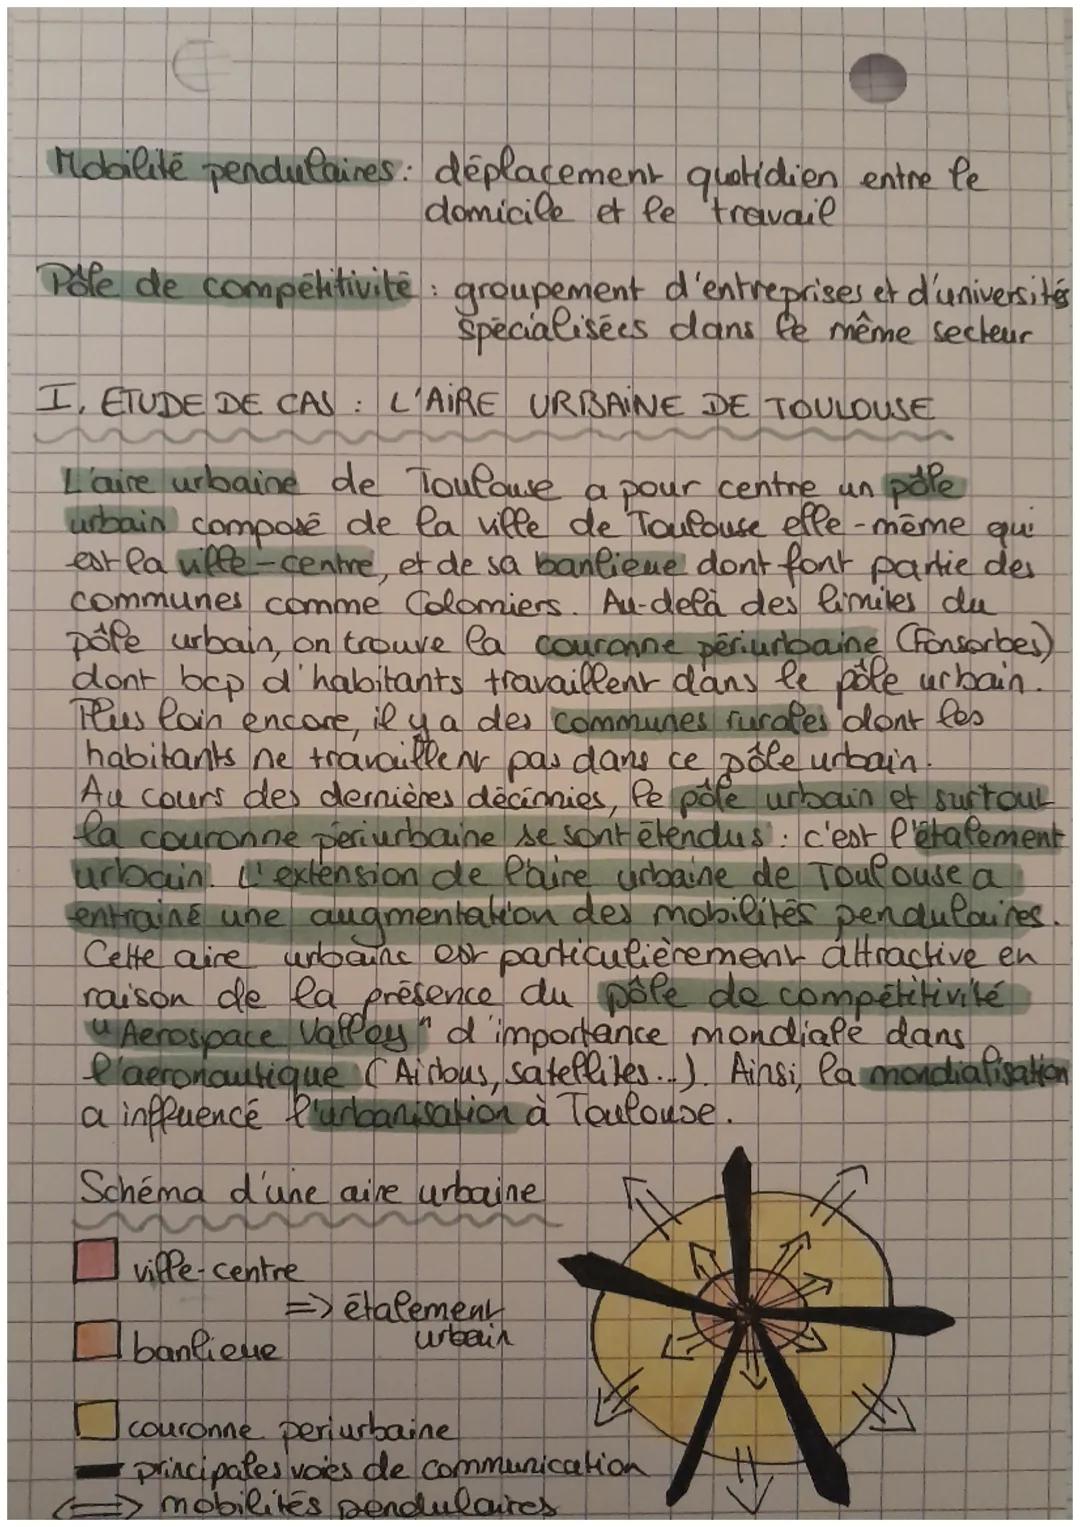 Mobilité pendulaires : déplacement quotidien entre le
domicile et le travail
Pôle de compétitivité : groupement d'entreprises et d'universités
spécialisées dans le même secteur
I. ETUDE DE CAS : L'AIRE URBAINE DE TOULOUSE
L'aire urbaine de Toulouse a pour centre un pôle
urbain composé de la ville de Toulouse elle-même qui
est la ville-centre, et de sa banlieue dont font partie des
communes comme Colomiers. Au-delà des limites du
pôle urbain, on trouve la couronne périurbaine (Fonsorbes)
dont bcp d'habitants travaillent dans le pôle urbain.
Plus loin encore, il y a des communes rurales dont les
habitants ne travaillent pas dans ce pôle urbain.
Au cours des dernières décinnies, le pôle urbain et surtout
la couronne périurbaine se sont étendus : c'est l'étalement
urbain. L'extension de l'aire urbaine de Toulouse a
entrainé une augmentation des mobilités pendulaires.
Cette aire urbaine est particulièrement attractive en
raison de la présence du pôle de compétitivité
"Aerospace Valley" d'importance mondiale dans
l'aeronautique (Airbus, satellites...). Ainsi, la mondialisation
a influencé l'urbanisation à Toulouse.
Schéma d'une aire urbaine
ville-centre
=> étalement
urbain
banlieue
couronne periurbaine
principales voies de communication
<=> mobilités pendulaires